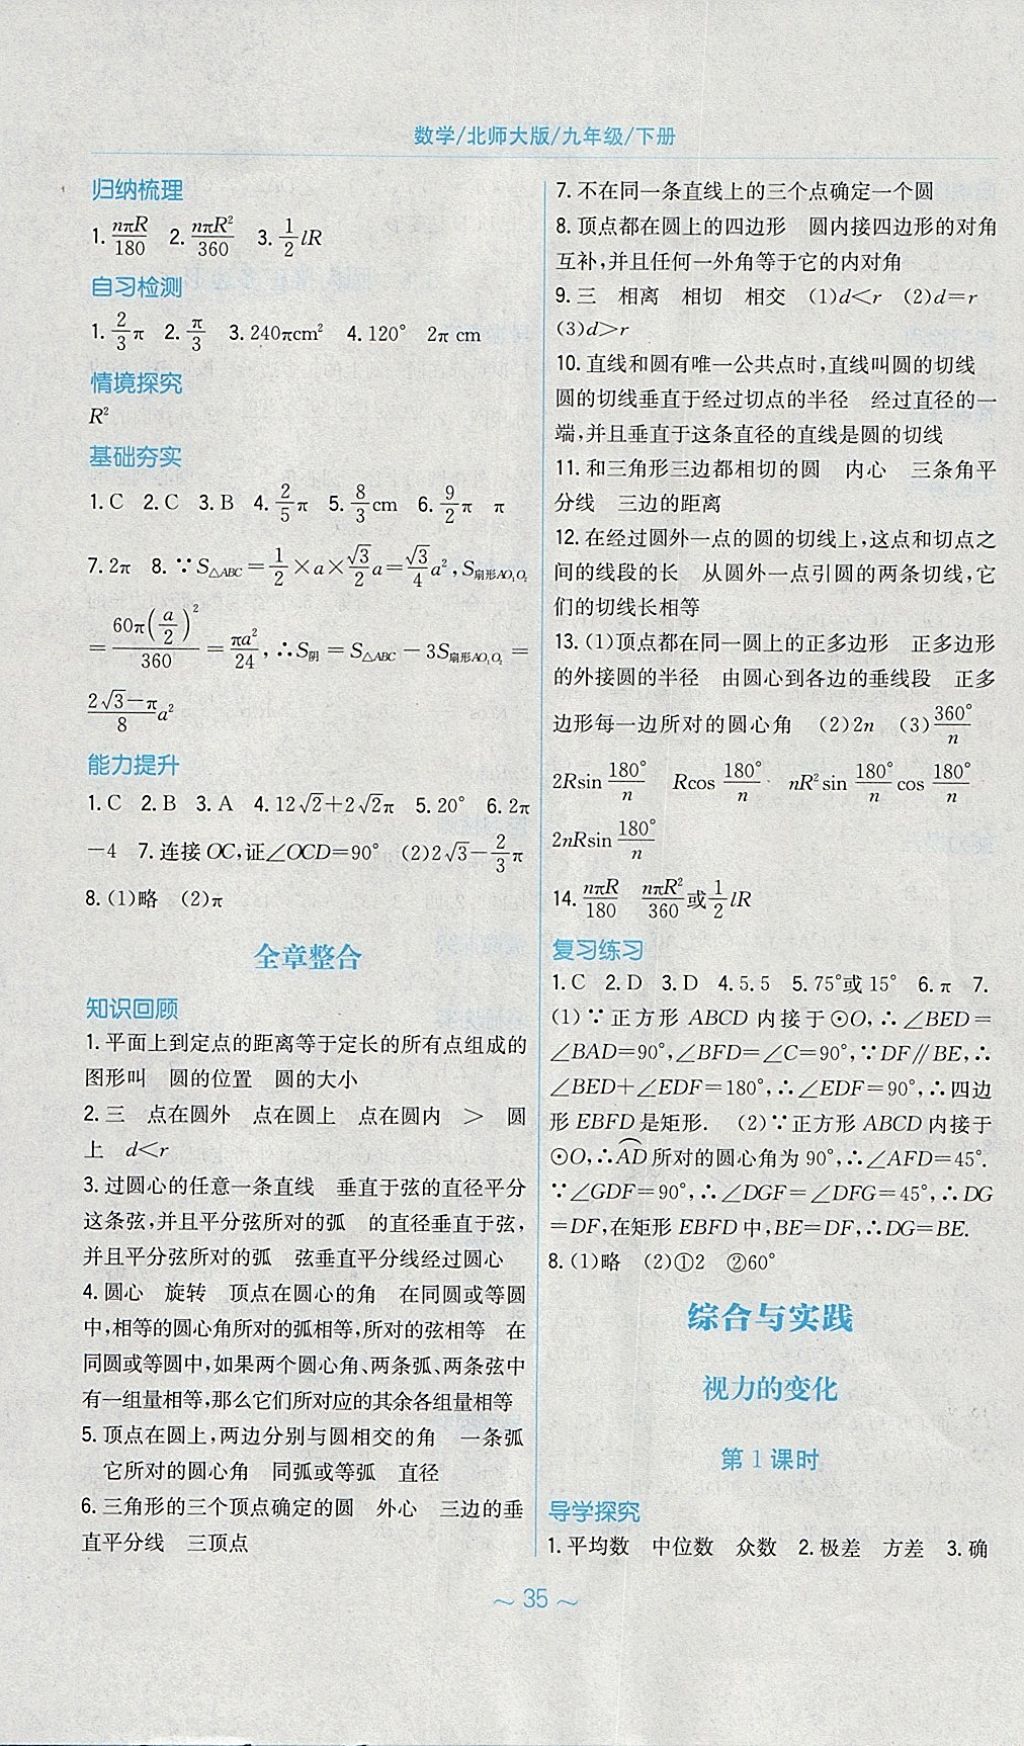 数学/北师大版/九年级/下册
归纳梳理
1. nπR/180  2. nπR²/360  3. 1/2 lR
自习检测
1. 2/3 π  2. π/3  3. 240πcm²  4. 120°  2π cm
情境探究
R²
基础夯实
1. C  2. C  3. B  4. 2/5 π  5. 8/3 cm  6. 9/2 π  π
7. 2π  8. ∵S△ABC=1/2×a×√3/2 a=√3/4 a²,S扇形AO₁O₂
=60π(a/2)²/360=πa²/24,∴S阴=S△ABC-3S扇形AO₁O₂=
2√3-π/8 a²
能力提升
1. C  2. B  3. A  4. 12√2+2√2π  5. 20°  6. 2π
-4  7. 连接OC,证∠OCD=90°  (2)2√3-2/3 π
8. (1)略  (2)π
全章整合
知识回顾
1. 平面上到定点的距离等于定长的所有点组成的
图形叫  圆的位置  圆的大小
2. 三  点在圆外  点在圆上  点在圆内  >  圆
上  d<r
3. 过圆心的任意一条直线  垂直于弦的直径平分
这条弦,并且平分弦所对的弧  的直径垂直于弦,
并且平分弦所对的弧  弦垂直平分线经过圆心
4. 圆心  旋转  顶点在圆心的角  在同圆或等圆
中,相等的圆心角所对的弧相等,所对的弦相等  在
同圆或等圆中,如果两个圆心角、两条弧、两条弦中
有一组量相等,那么它们所对应的其余各组量相等
5. 顶点在圆上,两边分别与圆相交的角  一条弧
它所对的圆心角  同弧或等弧  直径
6. 三角形的三个顶点确定的圆  外心  三边的垂
直平分线  三顶点
7. 不在同一条直线上的三个点确定一个圆
8. 顶点都在圆上的四边形  圆内接四边形的对角
互补,并且任何一外角等于它的内对角
9. 三  相离  相切  相交  (1)d<r  (2)d=r
(3)d>r
10. 直线和圆有唯一公共点时,直线叫圆的切线
圆的切线垂直于经过切点的半径  经过直径的一
端,并且垂直于这条直径的直线是圆的切线
11. 和三角形三边都相切的圆  内心  三条角平
分线  三边的距离
12. 在经过圆外一点的圆的切线上,这点和切点之
间的线段的长  从圆外一点引圆的两条切线,它
们的切线长相等
13. (1)顶点都在同一圆上的正多边形  正多边形
的外接圆的半径  由圆心到各边的垂线段  正多
边形每一边所对的圆心角  (2)2n  (3)360°/n
2Rsin 180°/n  Rcos 180°/n  nR²sin 180°/n cos 180°/n
2nRsin 180°/n
14. nπR/180  nπR²/360或1/2 lR
复习练习
1. C  2. D  3. D  4. 5.5  5. 75°或15°  6. π  7.
(1)∵正方形ABCD内接于⊙O,∴∠BED=
∠BAD=90°,∠BFD=∠C=90°,∵DF∥BE,∴
∠BED+∠EDF=180°,∴∠EDF=90°,∴四边
形EBFD是矩形.  (2)∵正方形ABCD内接于
⊙O,∴AD⌒所对的圆心角为90°,∴∠AFD=45°.
∵∠GDF=90°,∴∠DGF=∠DFG=45°,∴DG
=DF,在矩形EBFD中,BE=DF,∴DG=BE.
8. (1)略  (2)①2  ②60°
综合与实践
视力的变化
第1课时
导学探究
1. 平均数  中位数  众数  2. 极差  方差  3. 确
~ 35 ~